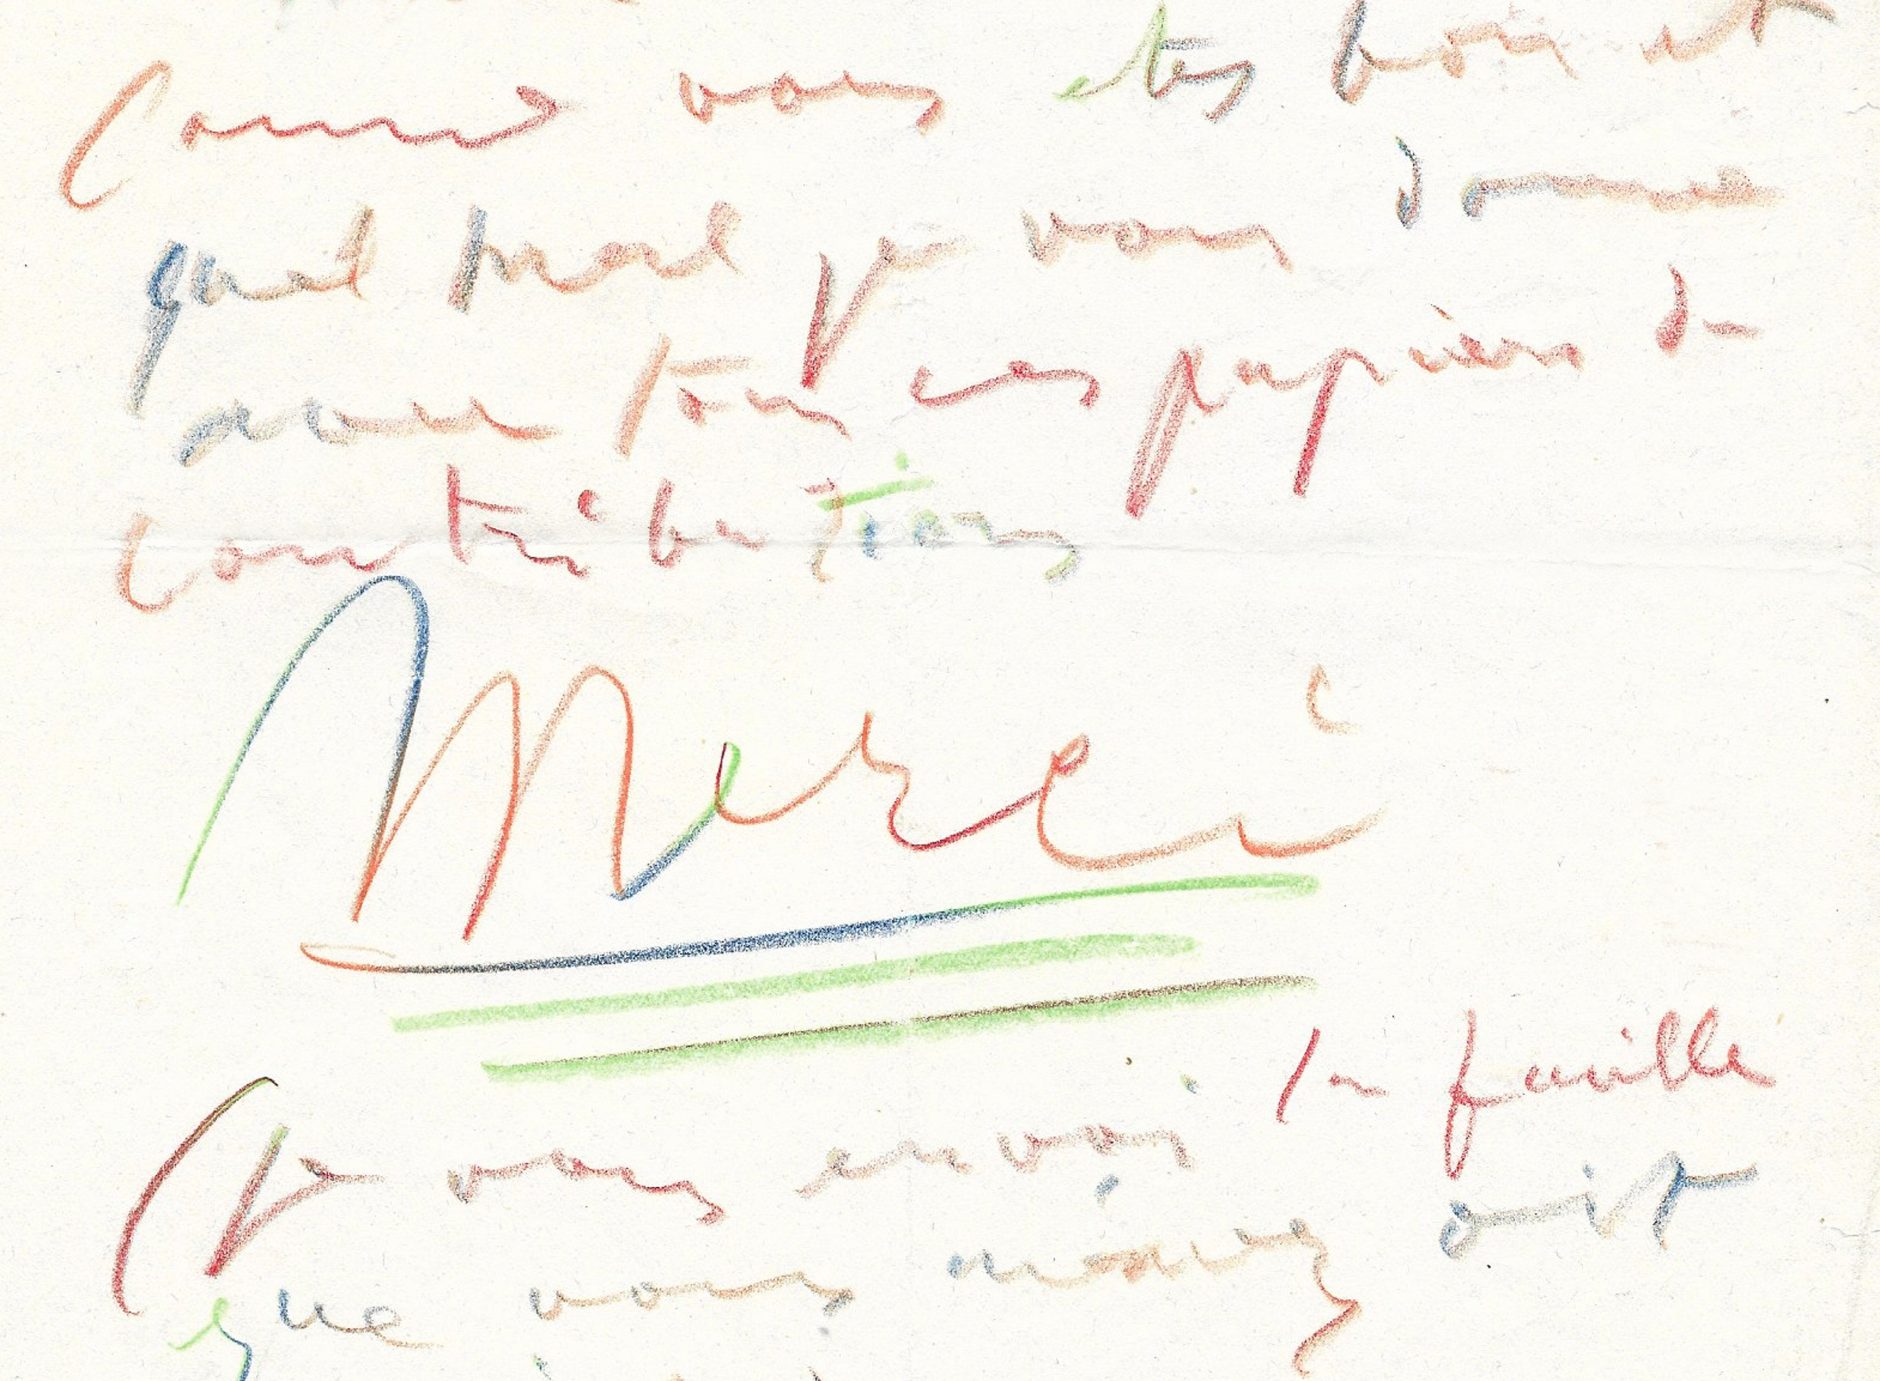 Comme vous etes bon et
quel mal je vous donne
avec tous ces papiers de
Contributions
Merci
(je vous envoi la feuille
que vous m'avez